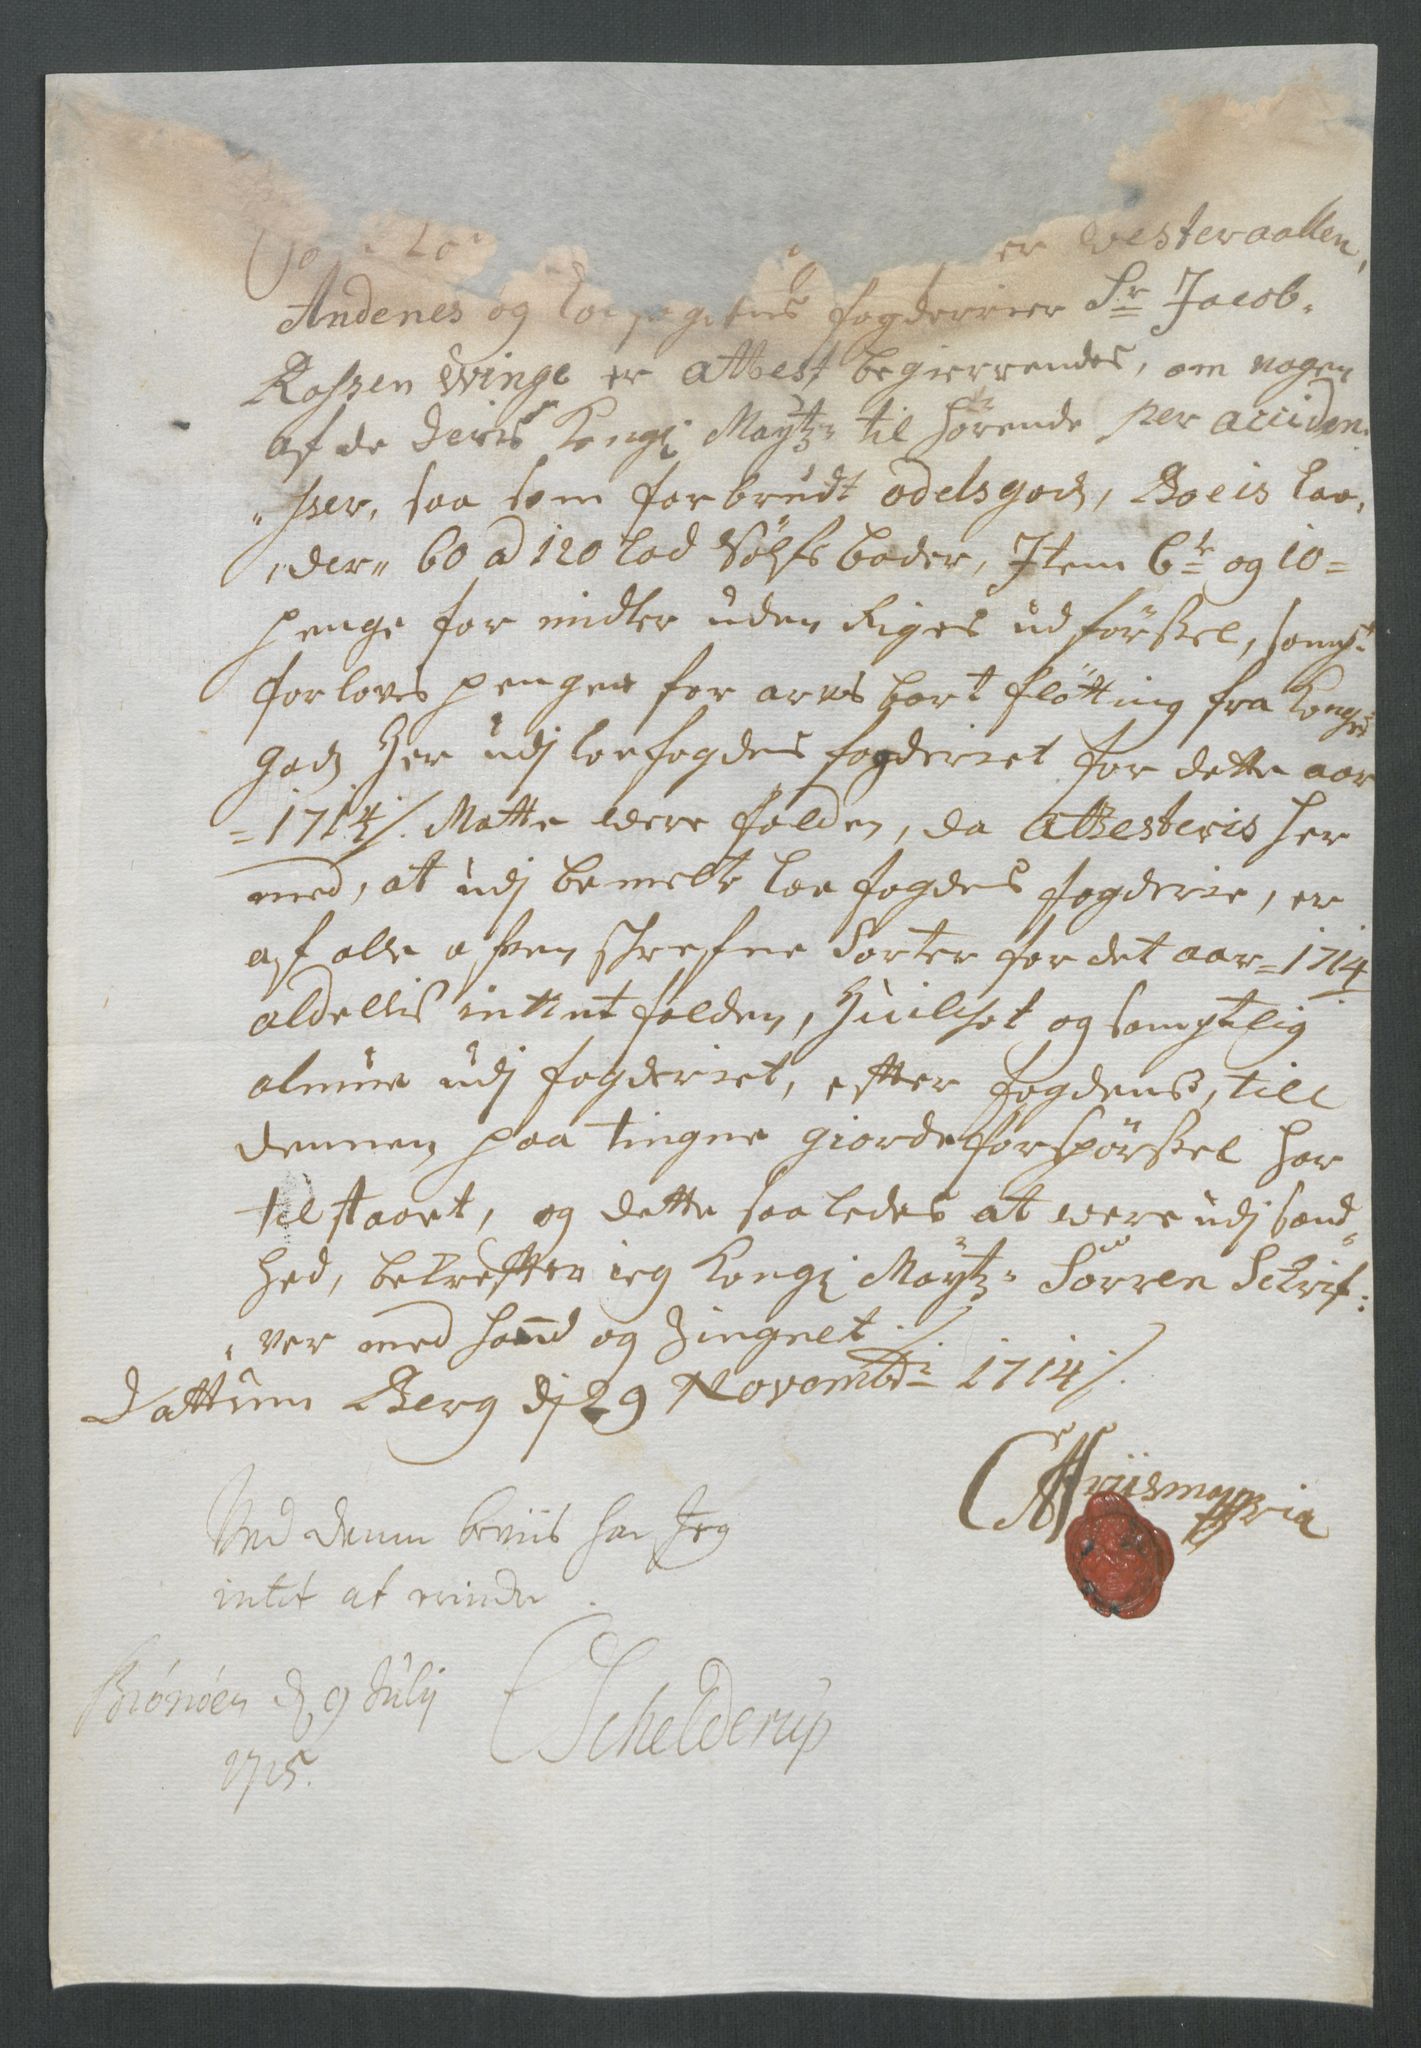 er Westeraallen,
Andenes og Lofogdens fogderier Sr Jacob
Rossen Winge er attest begierrendes, om nogen
af de deris Kongl Maytz til hörende per acciden¬
"sser, saa som forbrudt odelsgodz, Boeis Lao¬
"der" 60 a 120 lod Sölfs böder, Item 6te og 10=
penge for midler uden Riges udförßel, sampt
forlovs pengen for arvs bort flötting fra Konges
Godz Her udj loefogdens fogderiet for dette aar
=1714/. Motte were falden, da attesteris her
med, at udj bemelte loe fogdens fogderie, er
af alle ofven schrefne Sorter for det aar=1714
aldellis intet falden, Huilchet og samptlig
almue udj fogderiet, efter fogdens, till
dennem paa tingne giorde forspörßel har
tilstaaet, og dette saaledes at were udj sand¬
hed, bekrefter ieg Kongl Maytz Sorren Schrif:
"ver med haand og Zingnet ./
Dattum Berg dj 29 Novembr 1714/.
Ved denne beviis har Jeg
intet at erindre.
Brönöen d 9 Julij
1715.
CSchelderup